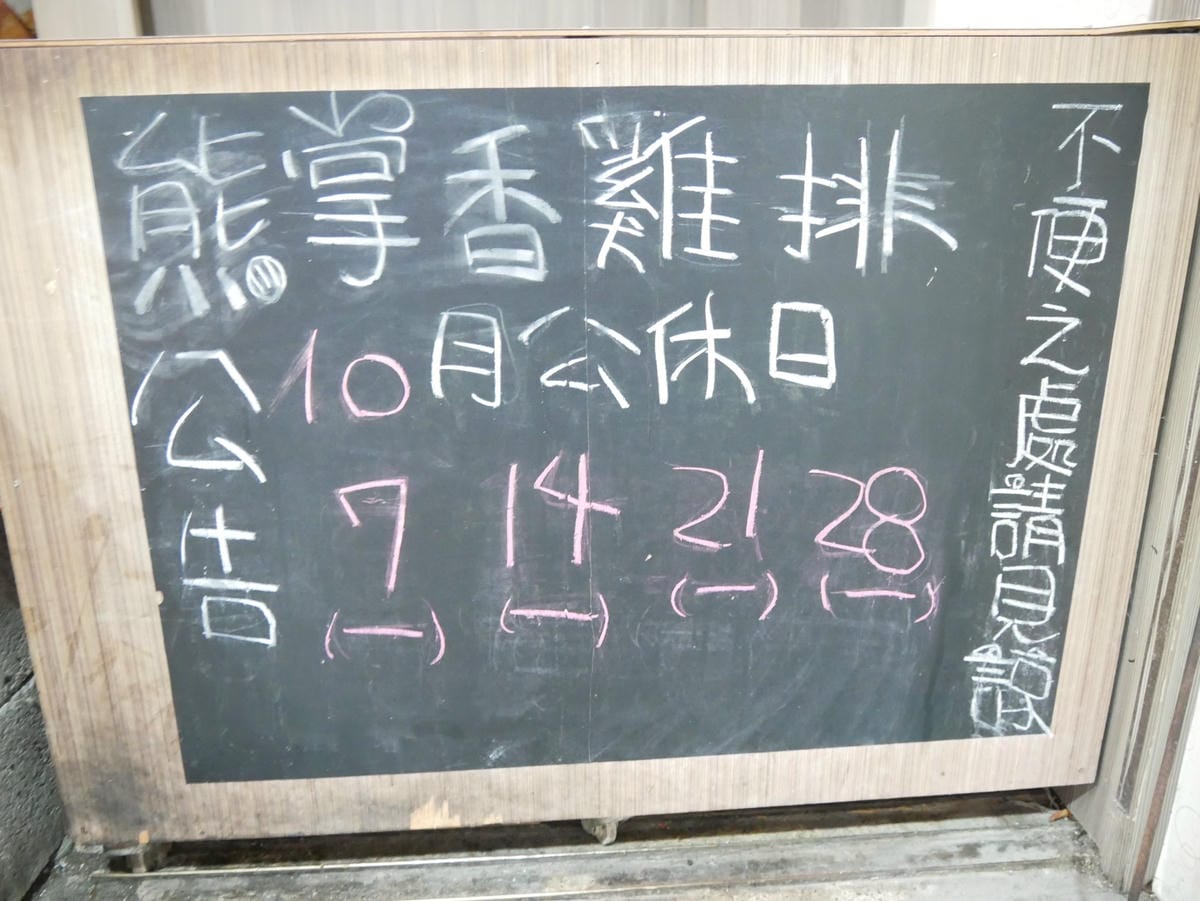 熊掌香雞排
10月公休日
公告
7 14 21 28
(一) (一) (一) (一)
不便之處請見諒